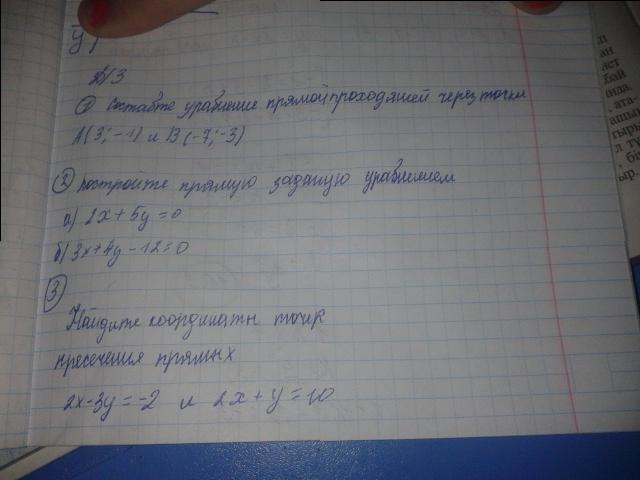 Д/З
① Составте уравнение прямой проходящей через точки
А(3; -1) и В(-7; -3)
② постройте прямую заданую уравнением
а) 2x + 5y = 0
б) 3x + 4y - 12 = 0
③
Найдите координаты точек
пресечения прямых
2x - 3y = -2 и 2x + y = 10